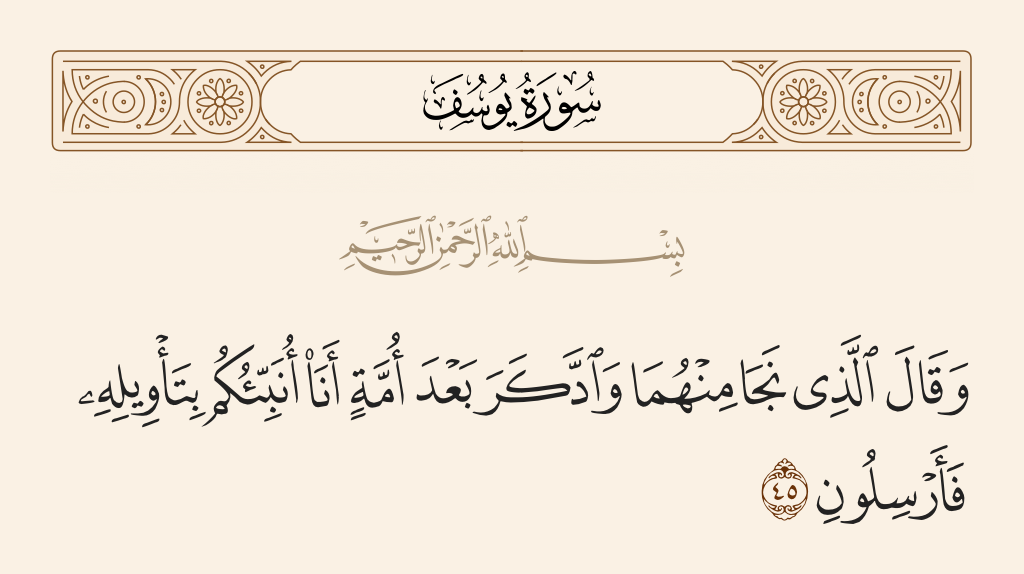 سُورَةُ يُوسُفَ
بِسْمِ ٱللَّهِ ٱلرَّحْمَٰنِ ٱلرَّحِيمِ
وَقَالَ ٱلَّذِى نَجَا مِنْهُمَا وَٱدَّكَرَ بَعْدَ أُمَّةٍ أَنَا۠ أُنَبِّئُكُم بِتَأْوِيلِهِۦ
فَأَرْسِلُونِ ٤٥